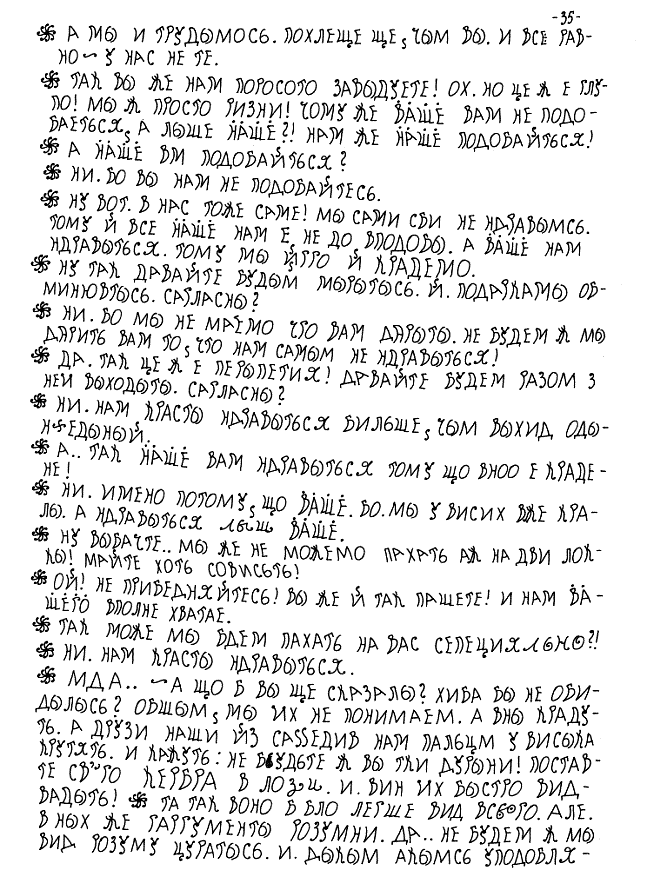 -35-
А МЫ И ТРУДЫМОСЬ. ПОХЛЕЩЕ ЩЕ, ЧЫМ ВЫ. И ВСЕ РАВ-
НО ~ У НАС НЕ ТЕ.
ТАК ВЫ ЖЕ НАМ ПОРОСОТО ЗАВЫДУЕТЕ! ОХ. НО ЦЕ Ж Е ГЛУ-
ПО! МЫ Ж ПРОСТО РИЗНИ! ЧОМУ ЖЕ ВАШЕ ВАМ НЕ ПОДО-
БАЕТЬСЯ, А ЛЫШЕ НАШЕ?! НАМ ЖЕ НАШЕ ПОДОБАЙТЬСЯ!
А НАШЕ ВМ ПОДОБАЙТЬСЯ?
НИ. БО ВЫ НАМ НЕ ПОДОБАЙТЕСЬ.
НУ ВОТ. В НАС ТОЖЕ САМЕ! МЫ САМИ СВИ НЕ НДРАВЫМСЬ.
ТОМУ Й ВСЕ НАШЕ НАМ Е, НЕ ДО ВПОДОБЫ. А ВАШЕ НАМ
НДРАВЫТЬСЯ. ТОМУ МЫ ЙГГО Й КРАДЕМО.
НУ ТАК ДАВАЙТЕ БУДЫМ МЫРЫТЫСЬ. Й. ПОДАРКАМЫ ОБ-
МИНЮВТЫСЬ. САГЛАСНЫ?
НИ. БО МЫ НЕ МАЕМО ЧТО ВАМ ДАРЫТЫ. НЕ БУДЕМ Ж МЫ
ДАРИТЬ ВАМ ТО, ЧТО НАМ САМЫМ НЕ НДРАВЫТЬСЯ!
ДА. ТАК ЦЕ Ж Е ПЕРЫПЕТИЯ! ДАВАЙТЕ БУДЕМ РАЗОМ З
НЕИ ВЫХОДЫТЫ. САГЛАСНЫ?
НИ. НАМ КРАСТЫ НДРАВЫТЬСЯ БИЛЬШЕ, ЧЫМ ВЫХИД ОДЫ-
НЕДЫНЫЙ..
А.. ТАК НАШЕ ВАМ НДРАВЫТЬСЯ ТОМУ ЩО ВНОО Е КРАДЕ-
НЕ!
НИ. ИМЕНО ПОТОМУ, ЩО ВАШЕ. БО. МЫ У ВИСИХ ВЖЕ КРА-
ЛЫ. А НДРАВЫТЬСЯ ЛЫШ ВАШЕ.
НУ ВЫБАЧТЕ.. МЫ ЖЕ НЕ МОЖЕМО ПАХАТЬ АЖ НА ДВИ ЛОК-
КЫ! МАЙТЕ ХОТЬ СОВИСЬТЬ!
ОЙ! НЕ ПРИБЕДНЯЙТЕСЬ! ВЫ ЖЕ Й ТАК ПАШЕТЕ! И НАМ ВА-
ШЕГО ВПОЛНЕ ХВАТАЕ.
ТАК МОЖЕ МЫ БДЕМ ПАХАТЬ НА ВАС СЕПЕЦИЯЛЬНО?!
НИ. НАМ КРАСТЫ НДРАВЫТЬСЯ.
МДА.. ~ А ЩО Б ВЫ ЩЕ СКАЗАЛЫ? ХИБА БЫ НЕ ОБИ-
ДЫЛЫСЬ? ОБЩЫМ, МЫ ИХ НЕ ПОНИМАЕМ. А ВНЫ КРАДУ-
ТЬ. А ДРУЗИ НАШИ ЙЗ САSSЕДИВ НАМ ПАЛЬЦМ У ВИСЫКА
КРУТЯТЬ. И КАЖУТЬ: НЕ БУДЬТЕ Ж ВЫ ТКИ ДУРЫНИ! ПОСТАВ-
ТЕ СВОГО КЕРБРА В ЛОЗИ. И. ВИН ИХ БЫСТРО ВИД-
ВАДЫТЬ! ТА ТАК ВОНО Б БЛО ЛЕГШЕ ВИД ВСЬОГО. АЛЕ.
В НЫХ ЖЕ ГАРГУМЕНТЫ РОЗУМНИ. ДА.. НЕ БУДЕМ Ж МЫ
ВИД РОЗУМУ ЦУРАТЫСЬ. И. ДЫКЫМ АКЫМСЬ УПОДОБЛЯ-